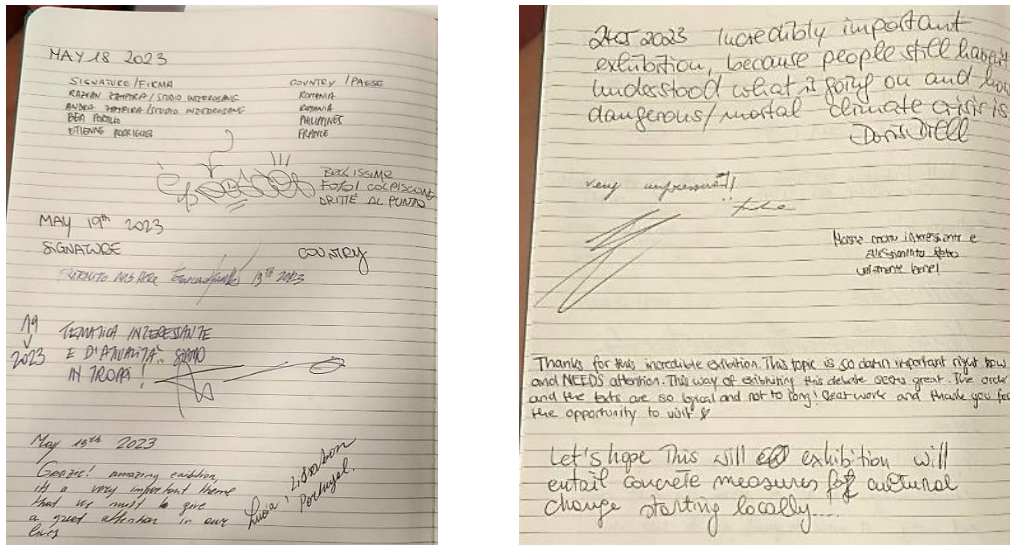 MAY 18 2023
SIGNATURE/FIRMA COUNTRY/PAESE
RAZVAN ZAMFIRA/STUDIO INTEROSANG ROMANIA
ANDRA ZAMFIRA/STUDIO INTEROSANG ROMANIA
BEA PORTILLO PHILIPPINES
ETIENNE RODRIGUES FRANCE
BELLISSIME
FOTO! COLPISCONO
DRITTE AL PUNTO
MAY 19th 2023
SIGNATURE COUNTRY
19th 2023
19
V
2023
TEMATICA INTERESSANTE
E D'ATTUALITÀ. SIAMO
IN TROPPI!
May 19th 2023
Grazie! amazing exibition,
it's a very important theme
that we must to give
a great attention in our
lives
Lucia, Lisbon
Portugal.
2023 Incredibly important
exhibition, because people still haven't
understood what is going on and how
dangerous/mortal climate crisis is
Doris Dell
very impressive!!
Mostra molto interessante e
allestimento fatto
veramente bene!
Thanks for this incredible exibition. This topic is so damn important right now
and NEEDS attention. This way of exibiting this debate seems great. The order
and the texts are so logical and not to long! Great work and thank you for
the opportunity to visit
Let's hope This will exhibition will
entail concrete measures for cultural
change starting locally...